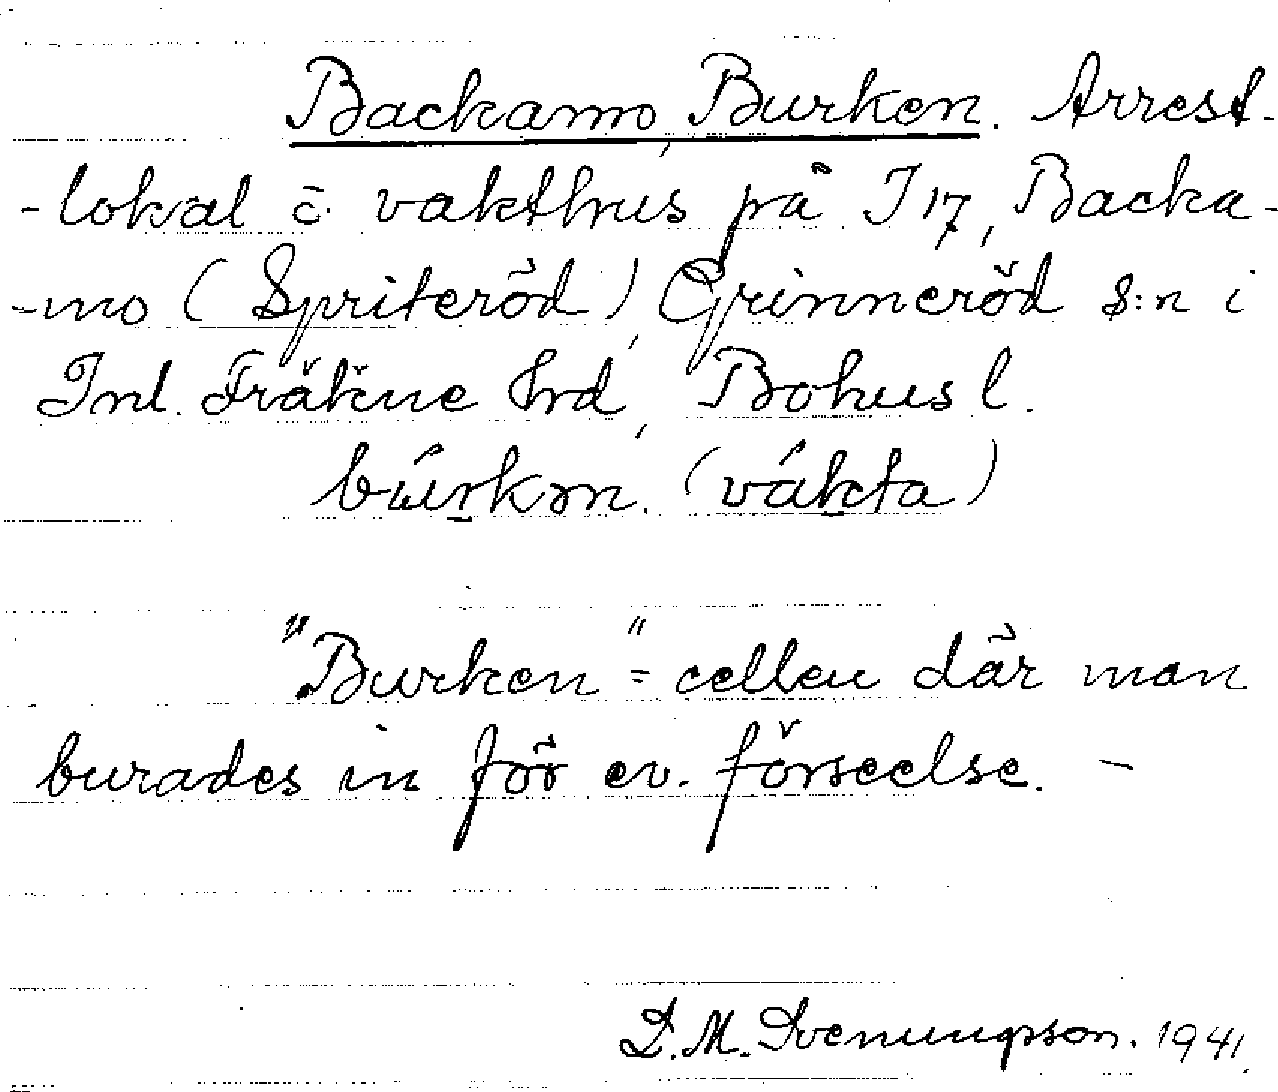 Backamo, Burken. Arrest-
-lokal o. vakthus på I 17, Backa-
-mo (Spriteröd), Grinneröd s:n i
Inl. Fräkne hrd, Bohus l.
búrkm. (vákta)
"Burken" = cellen där man
burades in för ev. förseelse. –
D. M. Svenungsson. 1941.